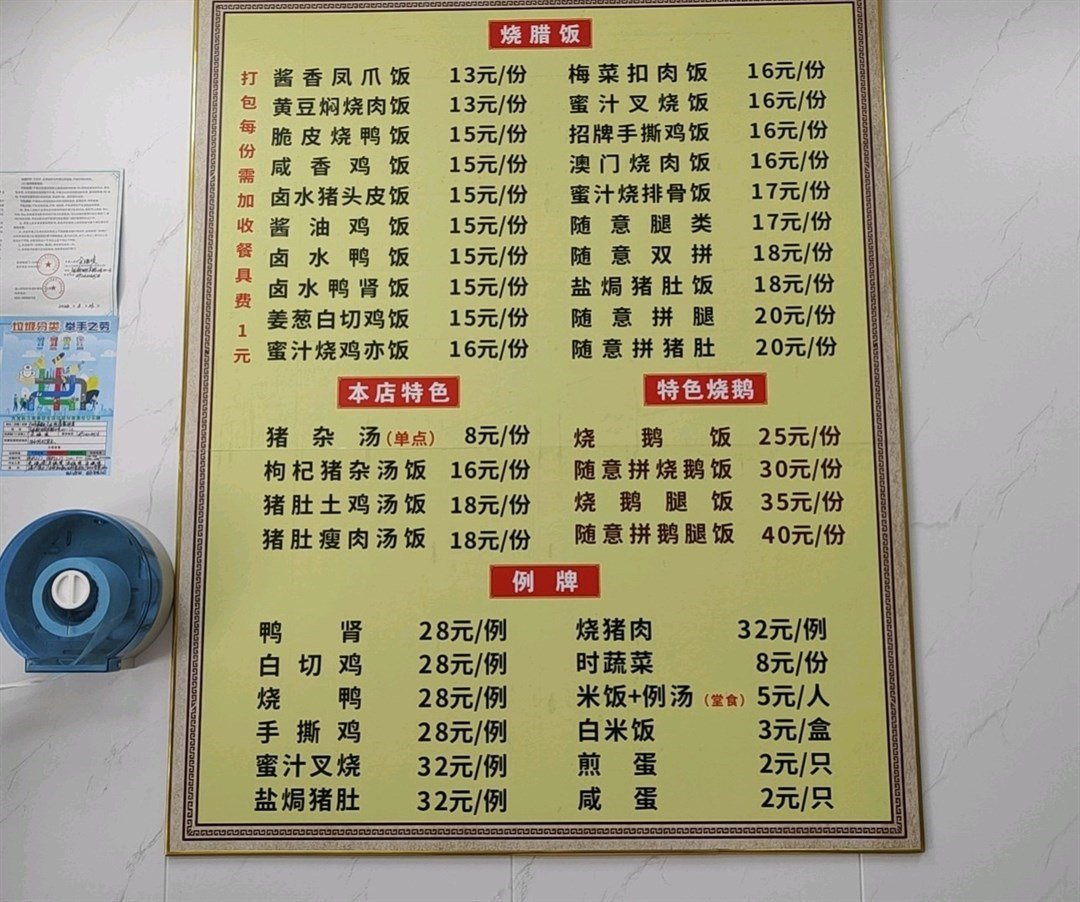 烧腊饭
打包每份需加收餐具费1元
酱香凤爪饭 13元/份
黄豆焖烧肉饭 13元/份
脆皮烧鸭饭 15元/份
咸香鸡饭 15元/份
卤水猪头皮饭 15元/份
酱油鸡饭 15元/份
卤水鸭饭 15元/份
卤水鸭肾饭 15元/份
姜葱白切鸡饭 15元/份
蜜汁烧鸡亦饭 16元/份
梅菜扣肉饭 16元/份
蜜汁叉烧饭 16元/份
招牌手撕鸡饭 16元/份
澳门烧肉饭 16元/份
蜜汁烧排骨饭 17元/份
随意腿类 17元/份
随意双拼 18元/份
盐焗猪肚饭 18元/份
随意拼腿 20元/份
随意拼猪肚 20元/份
本店特色
猪杂汤(单点) 8元/份
枸杞猪杂汤饭 16元/份
猪肚土鸡汤饭 18元/份
猪肚瘦肉汤饭 18元/份
特色烧鹅
烧鹅饭 25元/份
随意拼烧鹅饭 30元/份
烧鹅腿饭 35元/份
随意拼鹅腿饭 40元/份
例牌
鸭肾 28元/例
白切鸡 28元/例
烧鸭 28元/例
手撕鸡 28元/例
蜜汁叉烧 32元/例
盐焗猪肚 32元/例
烧猪肉 32元/例
时蔬菜 8元/份
米饭+例汤(堂食) 5元/人
白米饭 3元/盒
煎蛋 2元/只
咸蛋 2元/只
垃圾分类 举手之劳